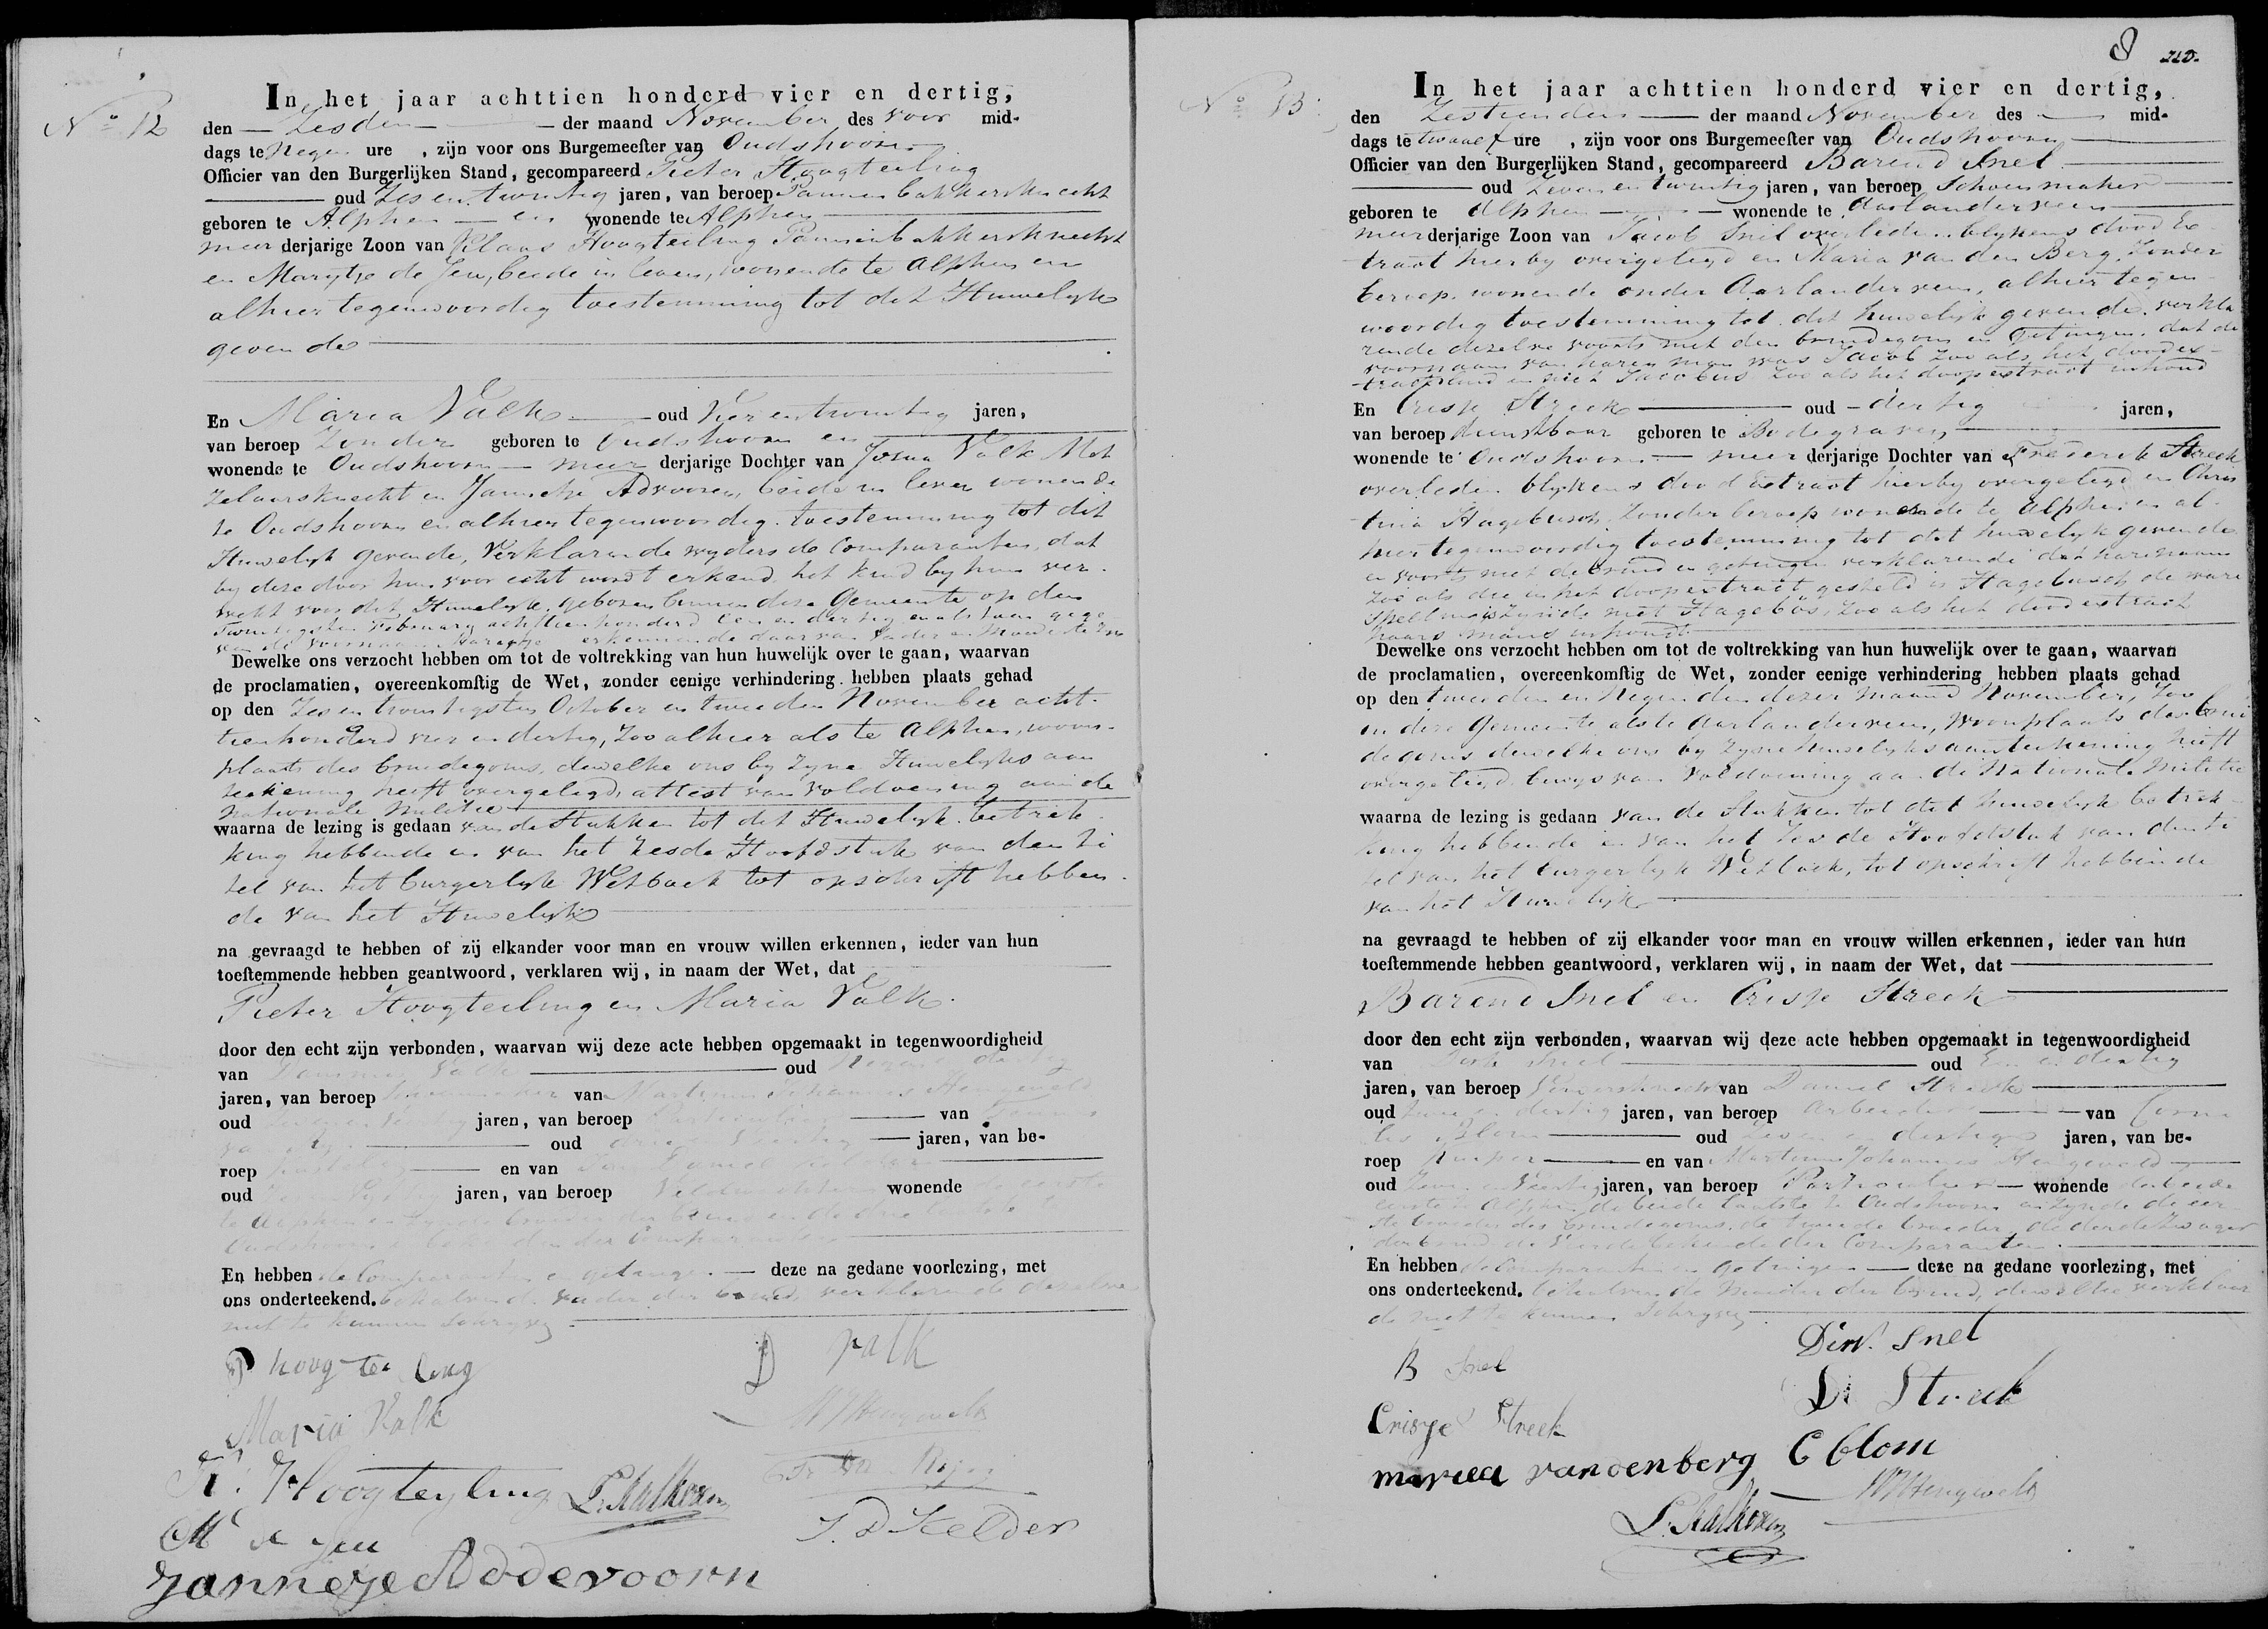 No 12
In het jaar achttien honderd vier en dertig,
den Zesden der maand November des voor mid-
dags te Negen ure , zijn voor ons Burgemeester van Oudshoorn
Officier van den Burgerlijken Stand, gecompareerd Pieter Hoogteiling
oud Zes en twintig jaren, van beroep Pannenbakkersknecht
geboren te Alphen en wonende te Alphen
meer derjarige Zoon van Klaas Hoogteiling Pannenbakkersknecht
en Marijtje de Jeu, beide in leven, wonende te Alphen en
alhier tegenwoordig toestemming tot dit Huwelijk
gevende
En Maria Valk oud Vier en twintig jaren,
van beroep Zonder geboren te Oudshoorn en
wonende te Oudshoorn meer derjarige Dochter van Josua Valk Met
zelaarsknecht en Jannetje Advooren, beide in leven wonende
te Oudshoorn en alhier tegenwoordig toestemming tot dit
Huwelijk gevende, Verklarende wyders de Comparanten, dat
by deze door hun voor echt wordt erkend het kind by hun ver-
wekt voor dit Huwelijk, geboren binnen deze Gemeente op den
Twintigsten February achttienhonderd een en dertig
erkennende daarvan Vader en Moeder te zyn
Dewelke ons verzocht hebben om tot de voltrekking van hun huwelijk over te gaan, waarvan
de proclamatien, overeenkomstig de Wet, zonder eenige verhindering hebben plaats gehad
op den Zes en twintigsten October en tweeden November acht-
tienhonderd vier en dertig, Zoo alhier als te Alphen, woon-
plaats des bruidegoms, dewelke ons by zyne Huwelijks aan
teekening heeft overgelegd attest van voldoening aan de
Nationale Militie
waarna de lezing is gedaan van de Stukken tot dit Huwelijk betrek-
king hebbende en van het Zesde Hoofdstuk van den ti
tel van het burgerlijk Wetboek tot opschrift hebben-
de van het Huwelijk
na gevraagd te hebben of zij elkander voor man en vrouw willen erkennen, ieder van hun
toestemmende hebben geantwoord, verklaren wij, in naam der Wet, dat
Pieter Hoogteiling en Maria Valk.
door den echt zijn verbonden, waarvan wij deze acte hebben opgemaakt in tegenwoordigheid
van Valk oud
jaren, van beroep van Martinus Johannes Hengeveld
oud jaren, van beroep van
oud jaren, van be-
roep en van
oud jaren, van beroep Veldwachter wonende
te Alphen
Oudshoorn
En hebben de Comparanten en getuigen deze na gedane voorlezing, met
ons onderteekend. behalve de vader der bruid, verklarende dezelve
niet te kunnen Schryven
P hoogteiling
D valk
Maria Valk
MJHengeveld
K: Hoogteyling
M de Jeu
J. D Kelder
Jannetje Adodevoorn
8
No 13.
In het jaar achttien honderd vier en dertig,
den Zestienden der maand November des mid-
dags te twaalf ure , zijn voor ons Burgemeester van Oudshoorn
Officier van den Burgerlijken Stand, gecompareerd Barend Snel
oud Zeven en twintig jaren, van beroep Schoenmaker
geboren te Alphen wonende te Aarlanderveen
meer derjarige Zoon van Jacob Snel overleden blykens dood Ex-
tract hierby overgelegd en Maria van den Berg, Zonder
beroep wonende onder Aarlanderveen, alhier tegen-
woordig toestemming tot dit huwelijk gevende, verkla-
rende dezelve voorts met den bruidegom en Getuigen, dat de
voornaam van haren man was Jacob zoo als het doodex-
tract luid en niet Jacobus zoo als het doopextract inhoud
En Crisje Streek oud dertig jaren,
van beroep dienstbaar geboren te Bodegraven
wonende te Oudshoorn meer derjarige Dochter van Frederik Streek
overleden blykens doodextract hierby overgelegd en Chris
tina Hagebusch, Zonder beroep wonende te Alphen en al-
hier tegenwoordig toestemming tot dit huwelijk gevende
en voorts met de bruid en getuigen verklarende dat haren naam
zoo als die in het doopextract gesteld is Hagebusch de ware
spelling is zynde niet Hagebos, zoo als het doodextract
haars mans inhoudt
Dewelke ons verzocht hebben om tot de voltrekking van hun huwelijk over te gaan, waarvan
de proclamatien, overeenkomstig de Wet, zonder eenige verhindering hebben plaats gehad
op den tweeden en Negenden dezer maand November, Zoo
in deze Gemeente als te Aarlanderveen, Woonplaats des brui
degoms dewelke ons by zyne huwelijks aanteekening heeft
overgelegd bewys van Voldoening aan de Nationale Militie
waarna de lezing is gedaan van de Stukken tot dit huwelijk betrek-
king hebbende en van het Zesde Hoofdstuk van den ti
tel van het burgerlijk Wetboek, tot opschrift hebbende
van het Huwelijk
na gevraagd te hebben of zij elkander voor man en vrouw willen erkennen, ieder van hun
toestemmende hebben geantwoord, verklaren wij, in naam der Wet, dat
Barend Snel en Crisje Streek
door den echt zijn verbonden, waarvan wij deze acte hebben opgemaakt in tegenwoordigheid
van Dirk Snel oud Een en dertig
jaren, van beroep van Daniel Streek
oud en dertig jaren, van beroep Arbeider van Corne
lis Blom oud Zes en dertig jaren, van be-
roep Kuiper en van Martinus Johannes Hengeveld
oud Zeven en Veertig jaren, van beroep Particulier wonende de beide
eerste te Alphen de beide laatste te Oudshoorn en zynde de eer
ste broeder des bruidegoms, de tweede broeder, de derde Zwager
der bruid de Vierde bekende der Comparanten.
En hebben de Comparanten en Getuigen deze na gedane voorlezing, met
ons onderteekend. behalven de Moeder der bruid, dewelke verklaar
de niet te kunnen Schryven
B Snel
Dirk Snel
Crisje Streek
D Streek
maria vandenberg
C blom
MJHengeveld